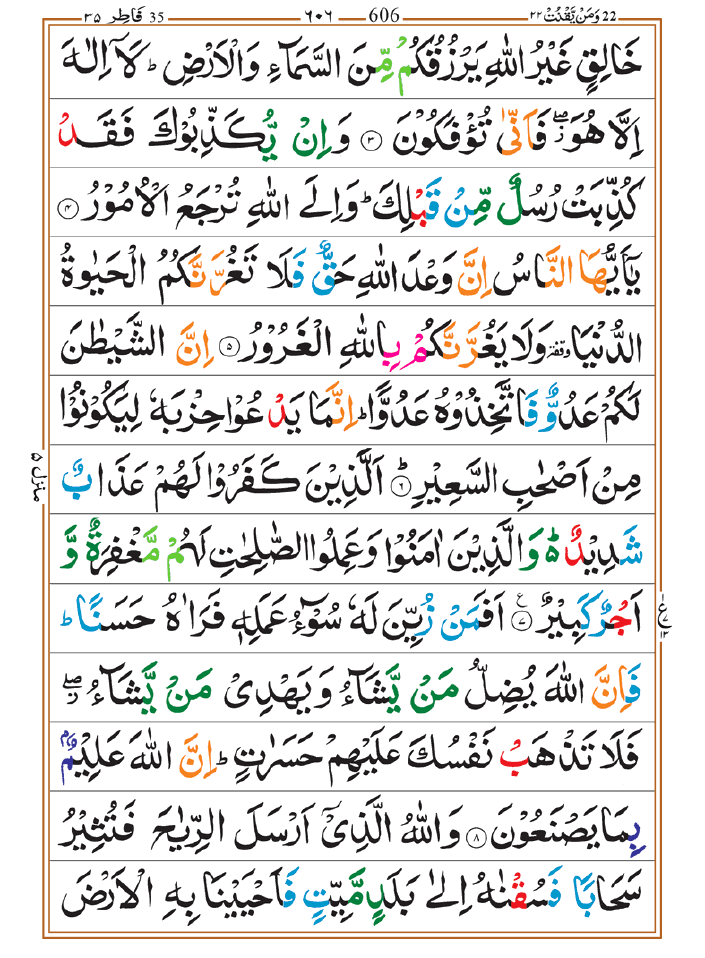 22 وَمَنۡ يَّقۡنُتۡ ٢٢ 606 ٦٠٦ 35 فَاطِر ٣٥
خَالِقٍ غَيۡرُ اللّٰهِ يَرۡزُقُكُمۡ مِّنَ السَّمَآءِ وَالۡاَرۡضِ ؕ لَاۤ اِلٰهَ
اِلَّا هُوَ ۖز فَاَنّٰى تُؤۡفَكُوۡنَ ۝۳ وَاِنۡ يُّكَذِّبُوۡكَ فَقَدۡ
كُذِّبَتۡ رُسُلٌ مِّنۡ قَبۡلِكَ ؕ وَاِلَى اللّٰهِ تُرۡجَعُ الۡاُمُوۡرُ ۝۴
يٰۤاَيُّهَا النَّاسُ اِنَّ وَعۡدَ اللّٰهِ حَقٌّ فَلَا تَغُرَّنَّكُمُ الۡحَيٰوةُ
الدُّنۡيَا وقفة وَلَا يَغُرَّنَّكُمۡ بِاللّٰهِ الۡغَرُوۡرُ ۝۵ اِنَّ الشَّيۡطٰنَ
لَكُمۡ عَدُوٌّ فَاتَّخِذُوۡهُ عَدُوًّا ؕ اِنَّمَا يَدۡعُوۡا حِزۡبَهٗ لِيَكُوۡنُوۡا
مِنۡ اَصۡحٰبِ السَّعِيۡرِ ؕ ۝۶ اَلَّذِيۡنَ كَفَرُوۡا لَهُمۡ عَذَابٌ
منزل ۵
شَدِيۡدٌ ؕ وَالَّذِيۡنَ اٰمَنُوۡا وَعَمِلُوا الصّٰلِحٰتِ لَهُمۡ مَّغۡفِرَةٌ وَّ
اَجۡرٌ كَبِيۡرٌ ۝۷ اَفَمَنۡ زُيِّنَ لَهٗ سُوۡٓءُ عَمَلِهٖ فَرَاٰهُ حَسَنًا ؕ
فَاِنَّ اللّٰهَ يُضِلُّ مَنۡ يَّشَآءُ وَيَهۡدِىۡ مَنۡ يَّشَآءُ ۖز
فَلَا تَذۡهَبۡ نَفۡسُكَ عَلَيۡهِمۡ حَسَرٰتٍ ؕ اِنَّ اللّٰهَ عَلِيۡمٌۢ
بِمَا يَصۡنَعُوۡنَ ۝۸ وَاللّٰهُ الَّذِىۡۤ اَرۡسَلَ الرِّيٰحَ فَتُثِيۡرُ
سَحَابًا فَسُقۡنٰهُ اِلٰى بَلَدٍ مَّيِّتٍ فَاَحۡيَيۡنَا بِهِ الۡاَرۡضَ